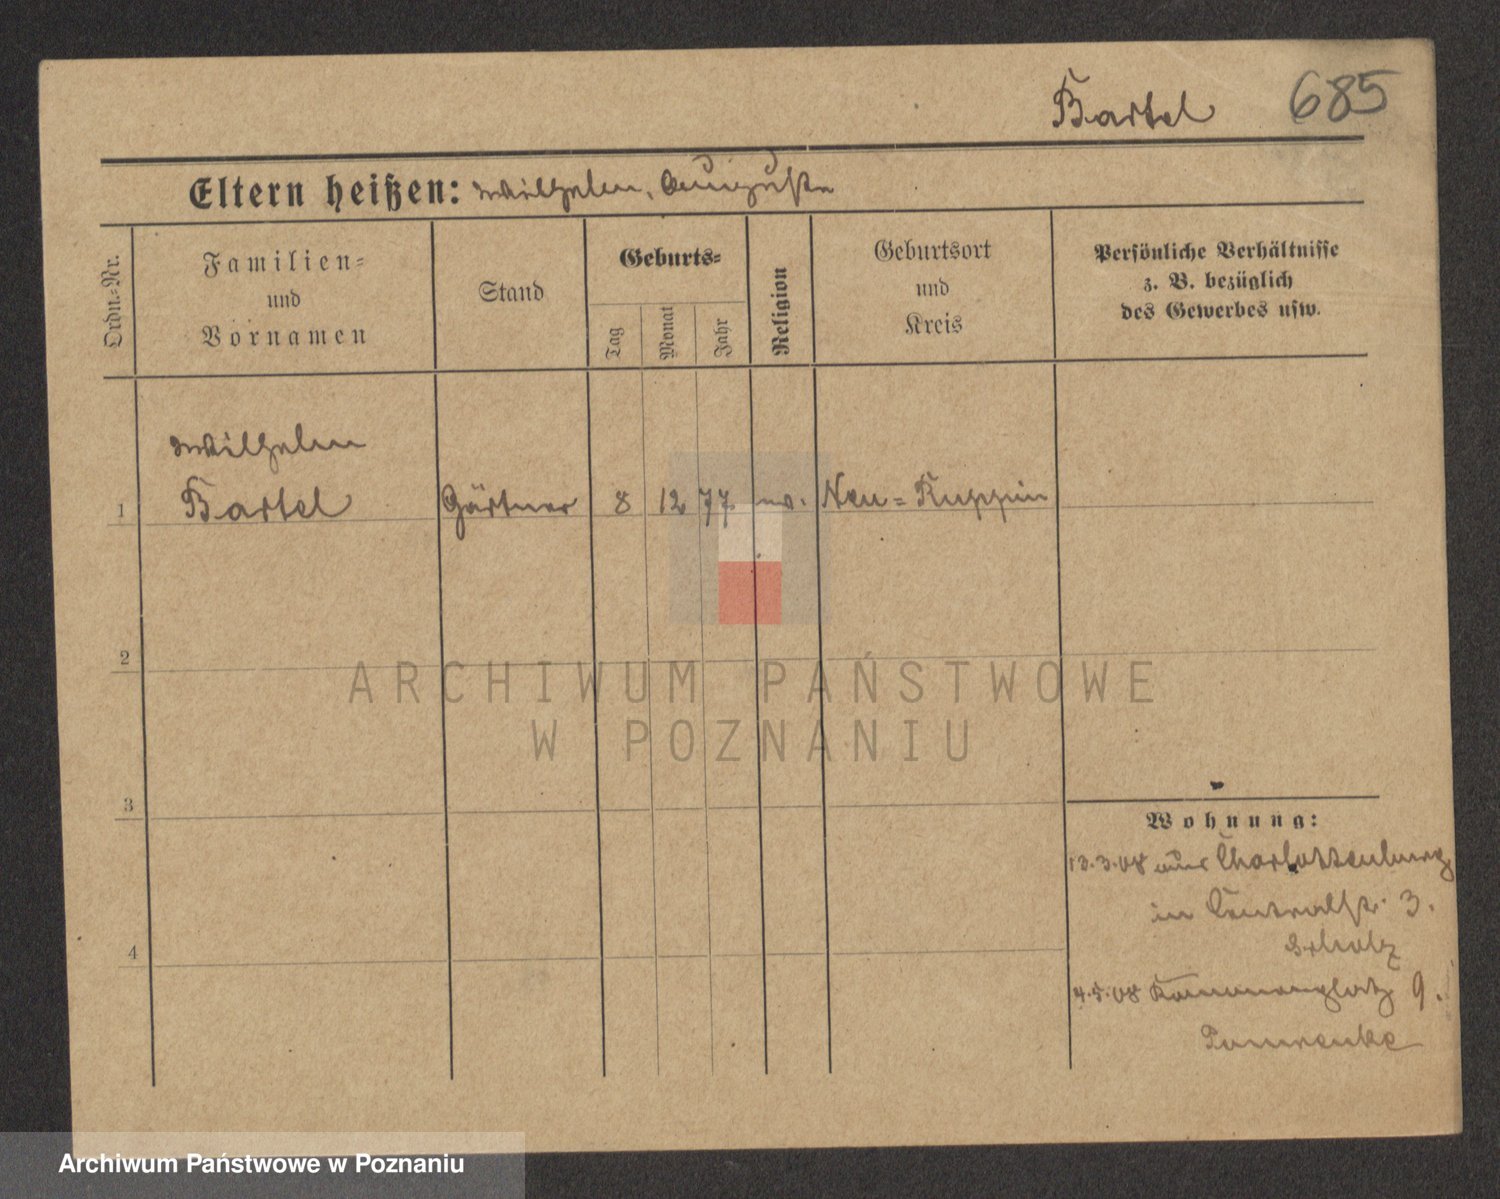 Bartel 685
Eltern heißen: Wilhelm, Auguste
Ordn.-Nr.
Familien-
und
Vornamen
Stand
Geburts-
Tag
Monat
Jahr
Religion
Geburtsort
und
Kreis
Persönliche Verhältnisse
z. B. bezüglich
des Gewerbes usw.
Wilhelm
1 Bartel Gärtner 8 12 77 ev. Neu=Ruppin
2
ARCHIWUM PAŃSTWOWE
W POZNANIU
3
Wohnung:
13.3.08 aus Charlottenburg
in Centralstr. 3.
Scholz
4
4.5.08 9.
Archiwum Państwowe w Poznaniu